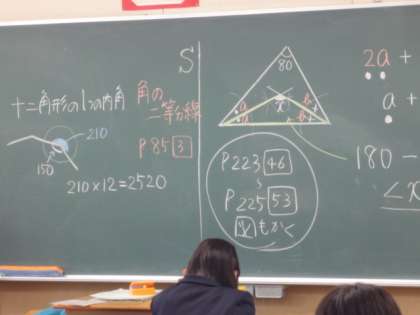 十二角形の1つの内角
210
150
210×12=2520
角の
二等分線
P85 3
S
80
x
a
a
P223 46
P225 53
図もかく
2a +
a +
180 -
∠x